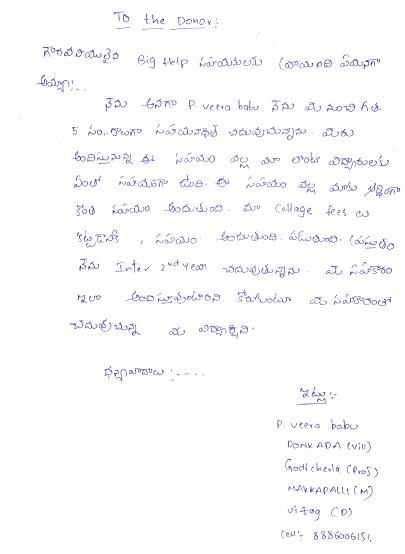 To the Donor:
గౌరవనీయులైన Big Help సహాయకులకు వ్రాయునది ఏమనగా
అయ్యా!..
నేను అనగా P. veera babu నేను మీ నుంచి గత
5 సం,,రాలుగా సహాయంతో చదువుచున్నాను. మీరు
అందిస్తున్న ఈ సహాయం వల్ల మా లాంటి విద్యార్థులకు
ఎంతో సహాయంగా ఉంది. ఈ సహాయం వల్ల మాకు ఆర్థికంగా
కొంత సహాయం అందుతుంది. మా Collage fees లు
కట్టడానికి, సహాయం అందుతుంది. పడుతుంది. ప్రస్తుతం
నేను Inter 2nd year చదువుతున్నాను. మీ సహకారం
ఇలా అందిస్తూవుంటారని కోరుకుంటూ మీ సహకారంతో
చదువుచున్న మీ విద్యార్థిని.
ధన్యవాదాలు :....
ఇట్లు:-
P. veera babu
DONKADA (vill)
Godicherla (Pos)
NAKKAPALLI (M)
vizag (D)
Cell: 8886006151.